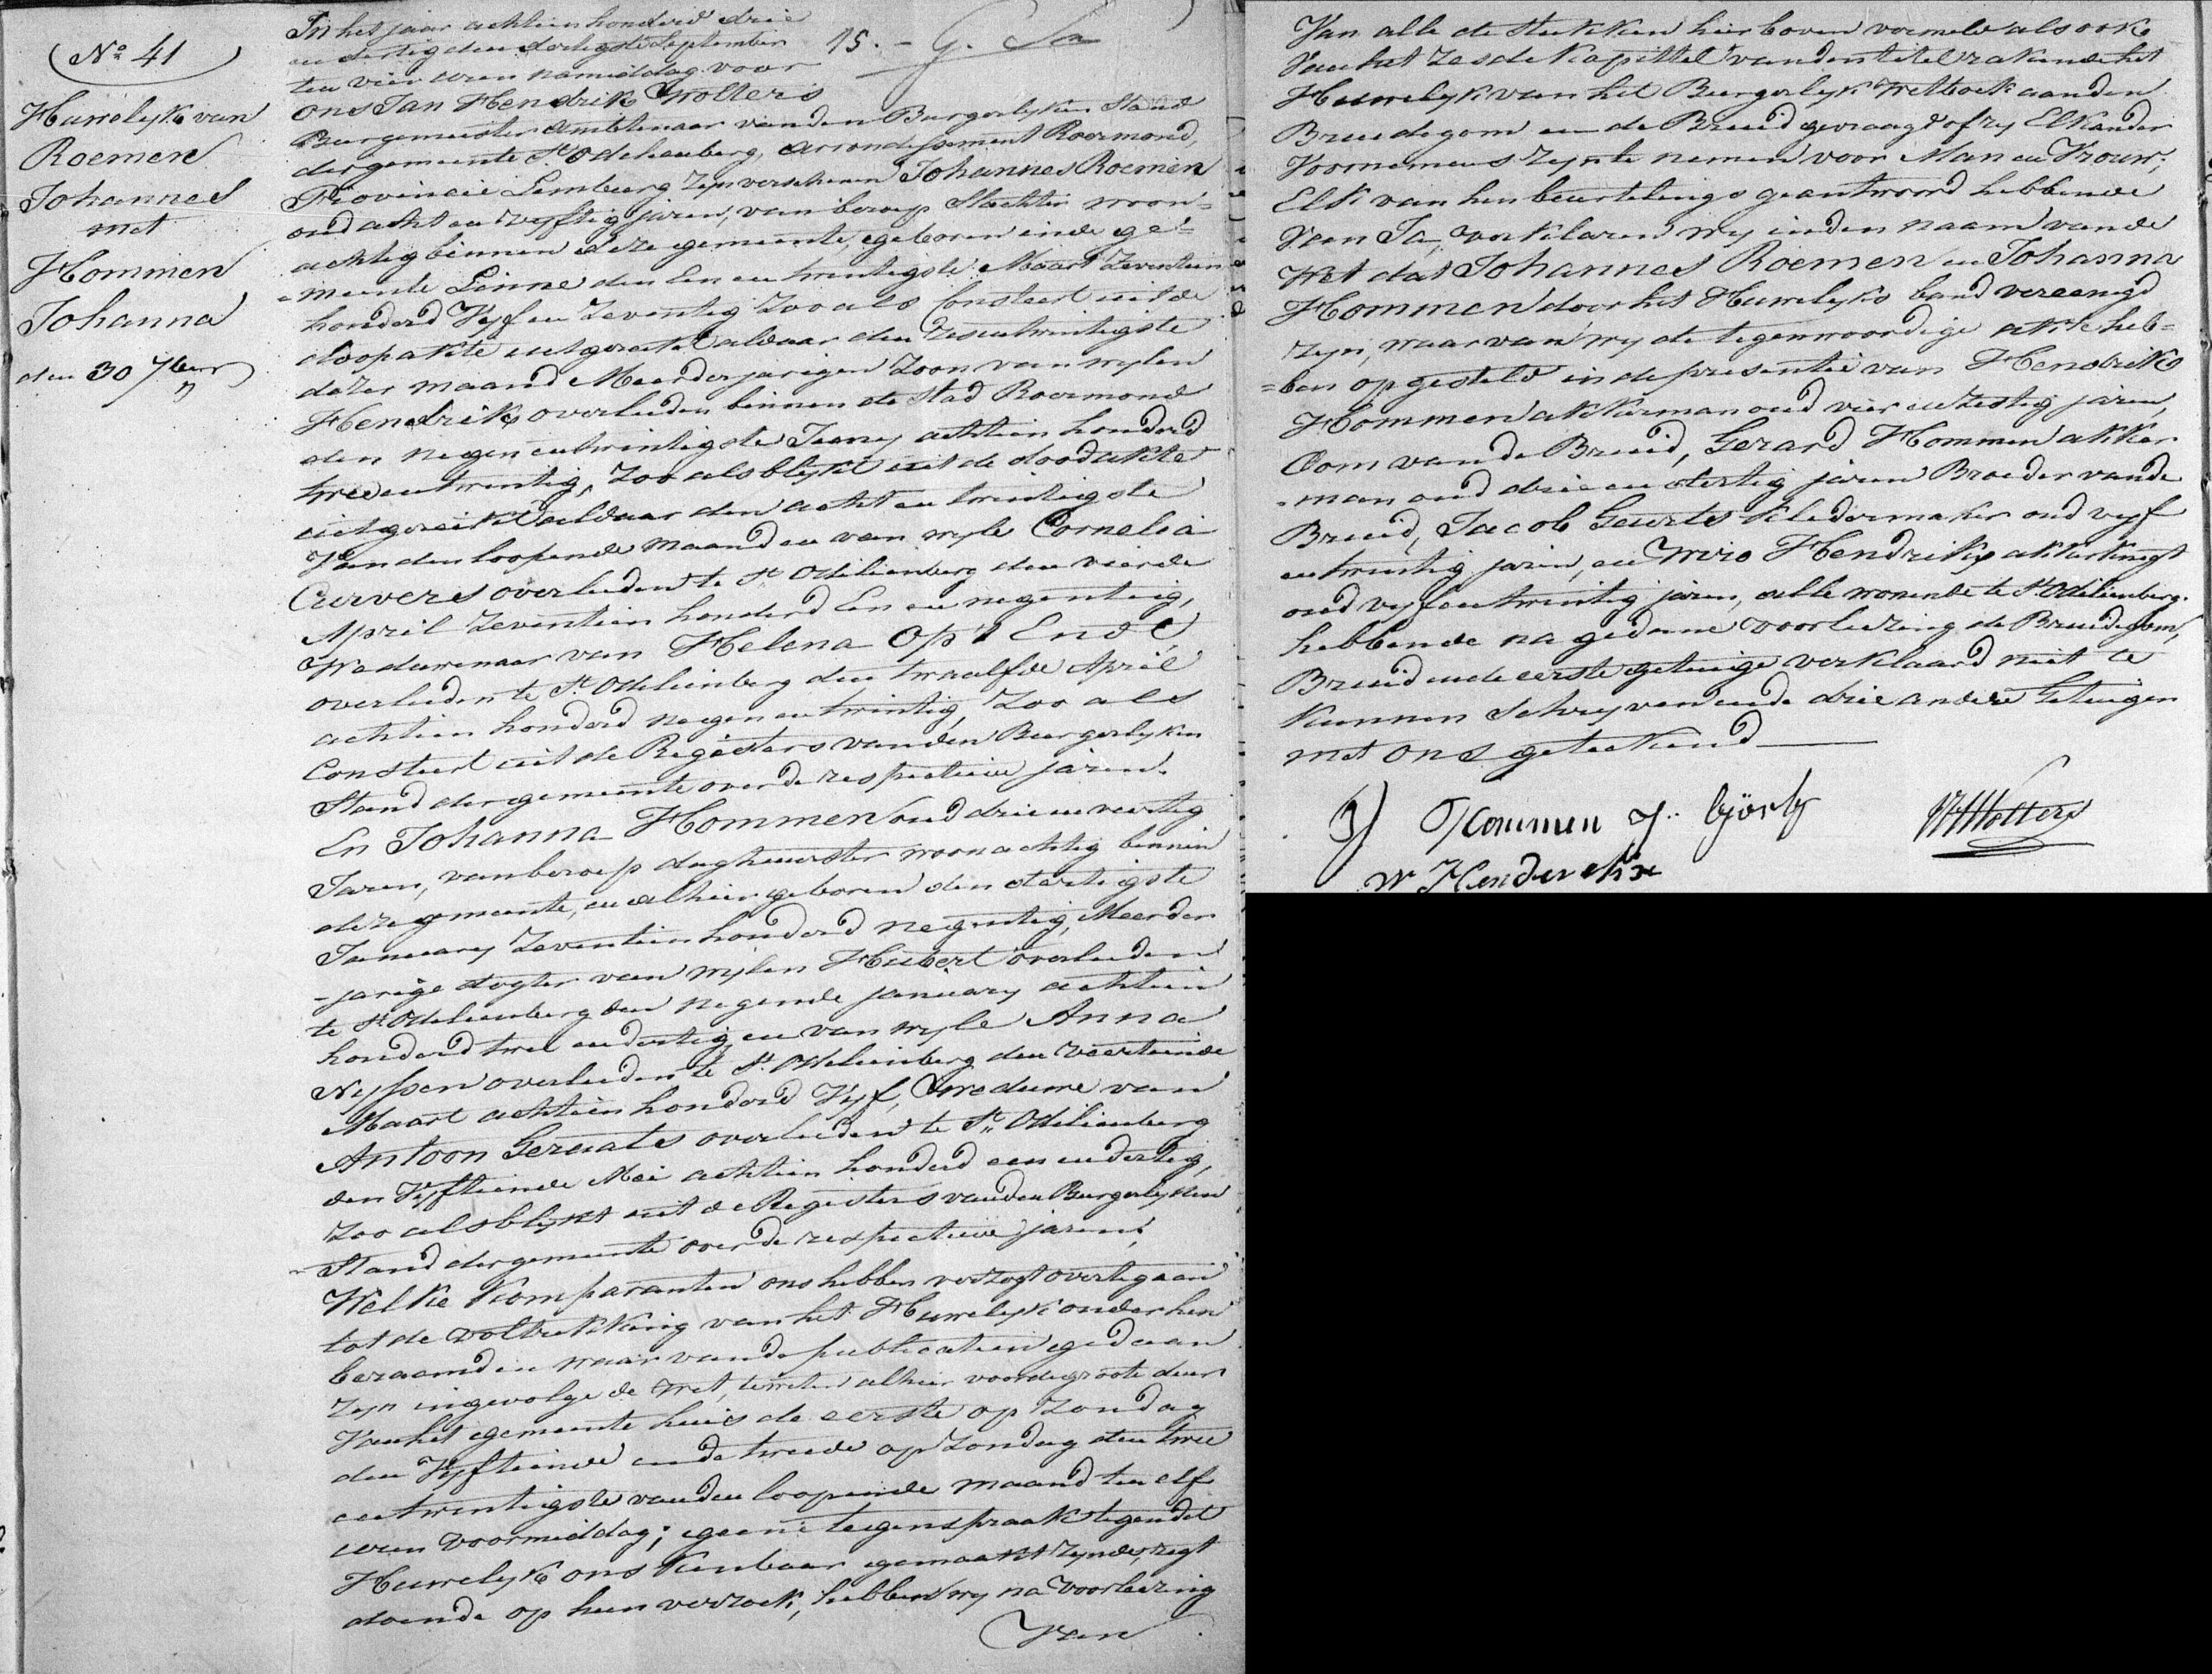 No 41
Huwelijk van
Roemen
Johannes
met
Hommen
Johanna
den 30 7ber
15. - G. Sa
In het jaar achtien honderd drie
en dertig den dertigste September
ten vier uren namiddag voor
ons Jan Hendrik Wolters
Burgemeester Ambtenaar van den Burgerlyken Stand
der gemeente St Odelienberg, arrondissement Roermond,
Provincie Limburg zyn verschenen Johannes Roemen
oud acht en vyftig jaren, van beroep Slachter woon-
achtig binnen deze gemeente, geboren in de ge-
meente Linne den Een en twintigste Maart Zeventien
honderd Vyf en Zeventig Zoo als Consteert uit de
doopakte uitgereikt aldaar den Zesentwintigste
dezer maand Meerderjarigen Zoon van wylen
Hendrik overleden binnen de stad Roermond
den negen entwintigste January achtien honderd
twee entwintig, zoo als blykt uit de doodakte
uitgereikt aldaar den acht en twintigste
Van den loopende maand en van wyle Cornelia
Curvers overleden te St Odelienberg den vierde
April Zeventien honderd Een en negentig,
Weduwenaar van Helena Op't Ende
overleden te St Odelienberg den twaalfde April
achtien honderd negen en twintig, Zoo als
Consteert uit de Registers van den Burgerlyken
Stand der gemeente over de respectieve jaren.
En Johanna Hommen oud drie en veertig
Jaren, van beroep daghuurster woonachtig binnen
deze gemeente, en alhier geboren den dertigste
January Zeventien honderd negentig, Meerder
-jarige dogter van wylen Hubert overleden
te St Odelienberg den negende january achtien
honderd twee en dertig en van wyle Anna
Nyssen overleden te St Odelienberg den veertiende
Maart achtien honderd Vyf, Weduwe van
Antoon Geraats overleden te St Odilienberg
den Vyftiende Mei achtien honderd een en dertig,
Zoo als blykt uit de Registers van den Burgerlyken
Stand der gemeente over de respectieve jaren;
Welke Komparanten ons hebben verzogt over te gaan
tot de voltrekking van het Huwelyk onder hen
beraamd en waar van de publicatien gedaan
zyn ingevolge de Wet, te weten alhier voor de groote deur
Van het gemeente huis de eerste op Zondag
den Vyftiende en de tweede op Zondag den twee
entwintigste van den loopende maand ten elf
uren voormiddag; geene tegenspraak tegen dit
Huwelyk ons kenbaar gemaakt zynde, regt
doende op hun verzoek, hebben wy na voorleezing
Van
Van alle de stukken hierboven vermeld als ook
Van het Zesde Kapittel van den titel rakende het
Huwelyk van het Burgerlyk Wetboek aan den
Bruidegom en de Bruid gevraagd of zy Elkander
Voornemens zyn te nemen voor Man en Vrouw;
Elk van hen beurtelings geantwoord hebbende
Van Ja, verklaren wy in den naam van de
Wet dat Johannes Roemen en Johanna
Hommen door het Huwelyks band vereenigd
zyn, waar van wy de tegenwoordige akte heb-
=ben opgesteld in de presentie van Hendrik
Hommen akkerman oud vier en Zestig jaren,
Oom van de Bruid, Gerard Hommen akker
-man oud drie en dertig jaren Broeder van de
Bruid, Jacob Geurts Kledermaker oud vyf
en twintig jaren, en Wiro Hendrikx akkerknegt
oud vyf en twintig jaren, alle wonende te St Odilienberg.
hebbende na gedane voorleezing de Bruidegom,
Bruid en de eerste getuige verklaard niet te
Kunnen Schryven en de drie andere Getuigen
met ons geteekend
G Hommen J. Görtz
JH Wolters
W Henderickx